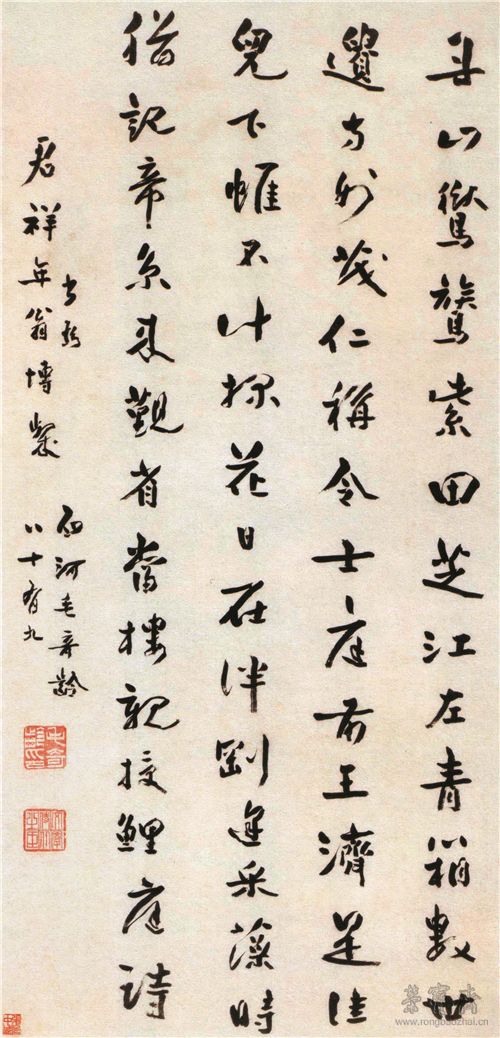 丹山鸑鷟紫田芝江左青箱數世
遺方外茂仁稱令士庭前王濟是佳
兒下帷不計探花日在泮剛逢采藻時
猶記帝京來覲省當樓親授鯉庭詩
書
君祥年翁博粲
西河毛奇齡
八十有九
榮寳齋
www.rongbaozhai.cn